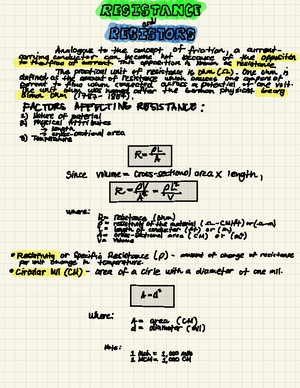 RESISTANCE
and
RESISTORS
Analogue to the concept of friction, a current-
carrying conductor can become hot because of the opposition
to the flow of current. This opposition is known as resistance.
The practical unit of resistance is ohm (Ω). One ohm is
defined as the amount of resistance which causes one ampere of
current to flow when connected across a potential of one volt.
The unit ohm was named after the German physicist Georg
Simon Ohm (1787-1854).
FACTORS AFFECTING RESISTANCE:
a) Nature of material
b) Physical Attributes
→ length
→ cross-sectional area
c) Temperature
R = ρL/A
Since volume = cross-sectional area × length,
R = ρV/A² = ρL²/V
where:
R = resistance (ohm)
ρ = resistivity of the material (Ω-CM/ft) or (Ω-m)
L = length of conductor (ft) or (m)
A = cross-sectional area (CM) or (m²)
V = volume
• Resistivity or Specific Resistance (ρ) - amount of change of resistance
per unit change in temperature.
• Circular Mil (CM) - area of a circle with a diameter of one mil.
A = d²
Where:
A = area (CM)
d = diameter (mil)
Note:
1 inch = 1,000 mils
1 MCM = 1,000 CM